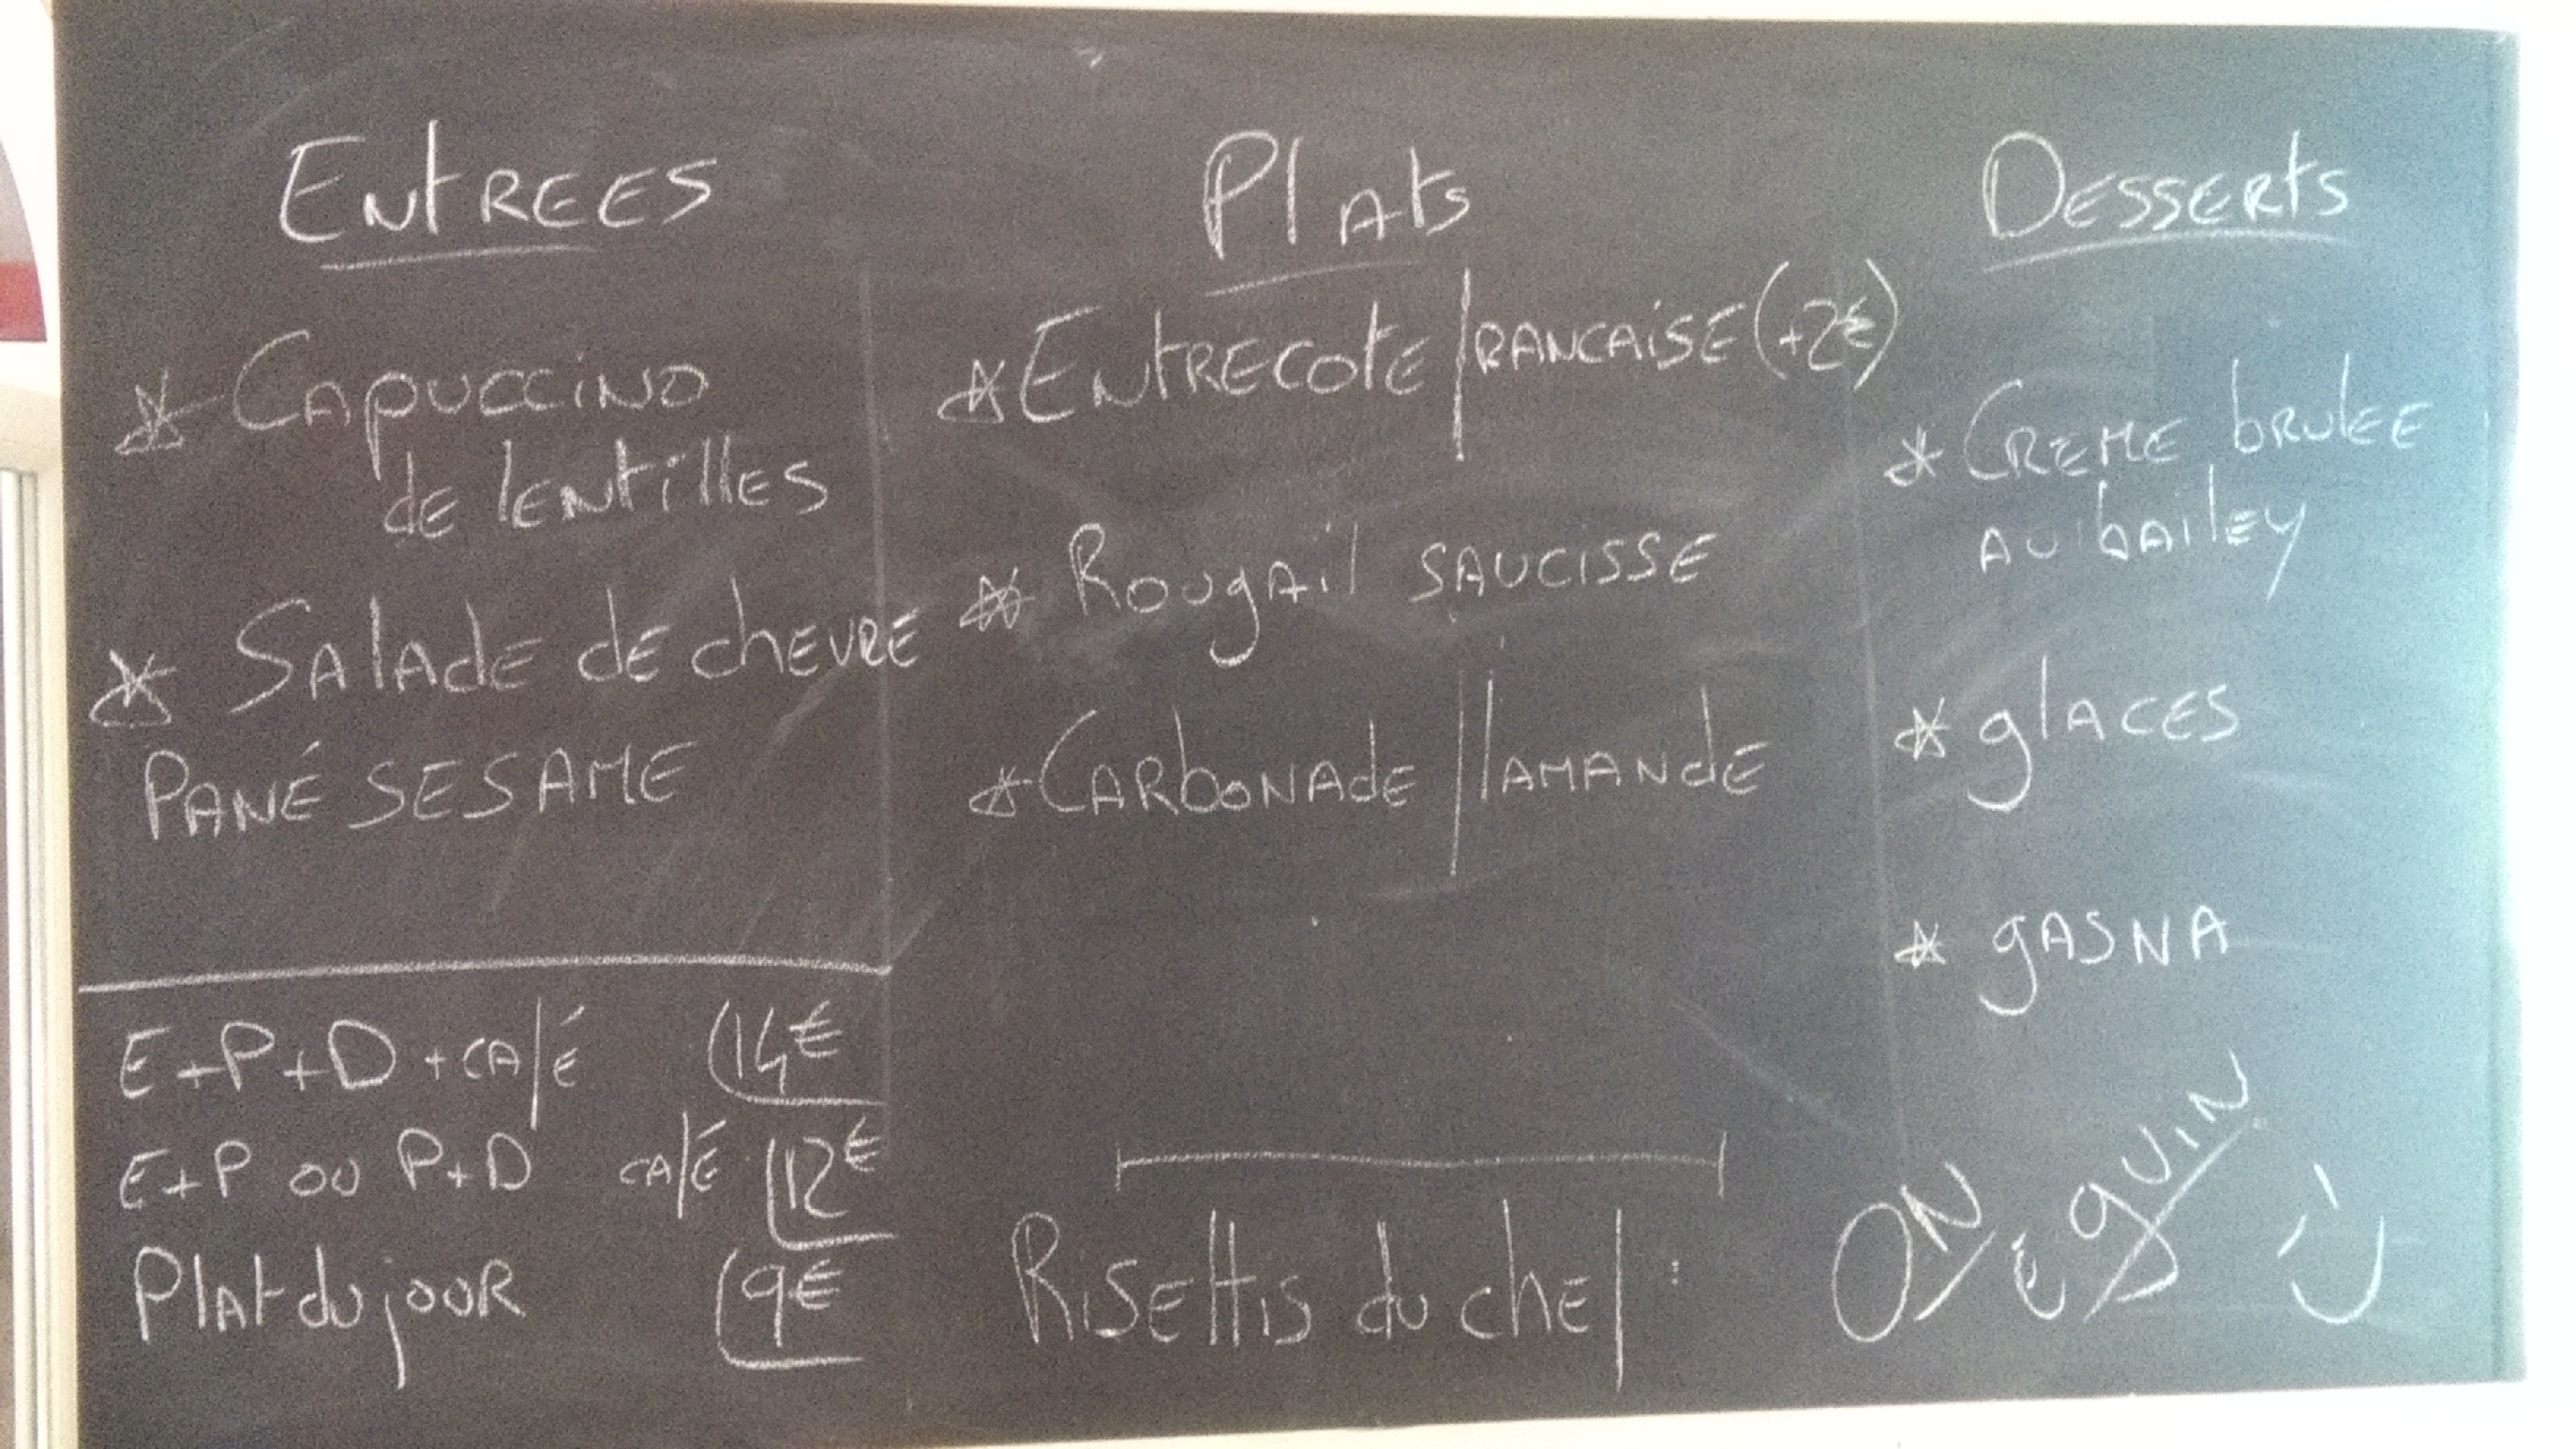 ENTREES
* CAPUCCINO
de lENtillES
* SAlAdE dE chEVRE
PANÉ SESAME
E+P+D+CAfé 14€
E+P OU P+D CAfÉ 12€
PlAt du jOUR 9€
PlAts
* ENtRECOtE fRANCAiSE (+2€)
* ROUgAil SAUCISSE
* CARbONAdE flAMANdE
RiSEttis du chEf :
DESSERtS
* CREME bRUlEE
AU bAilEy
* glACES
* gASNA